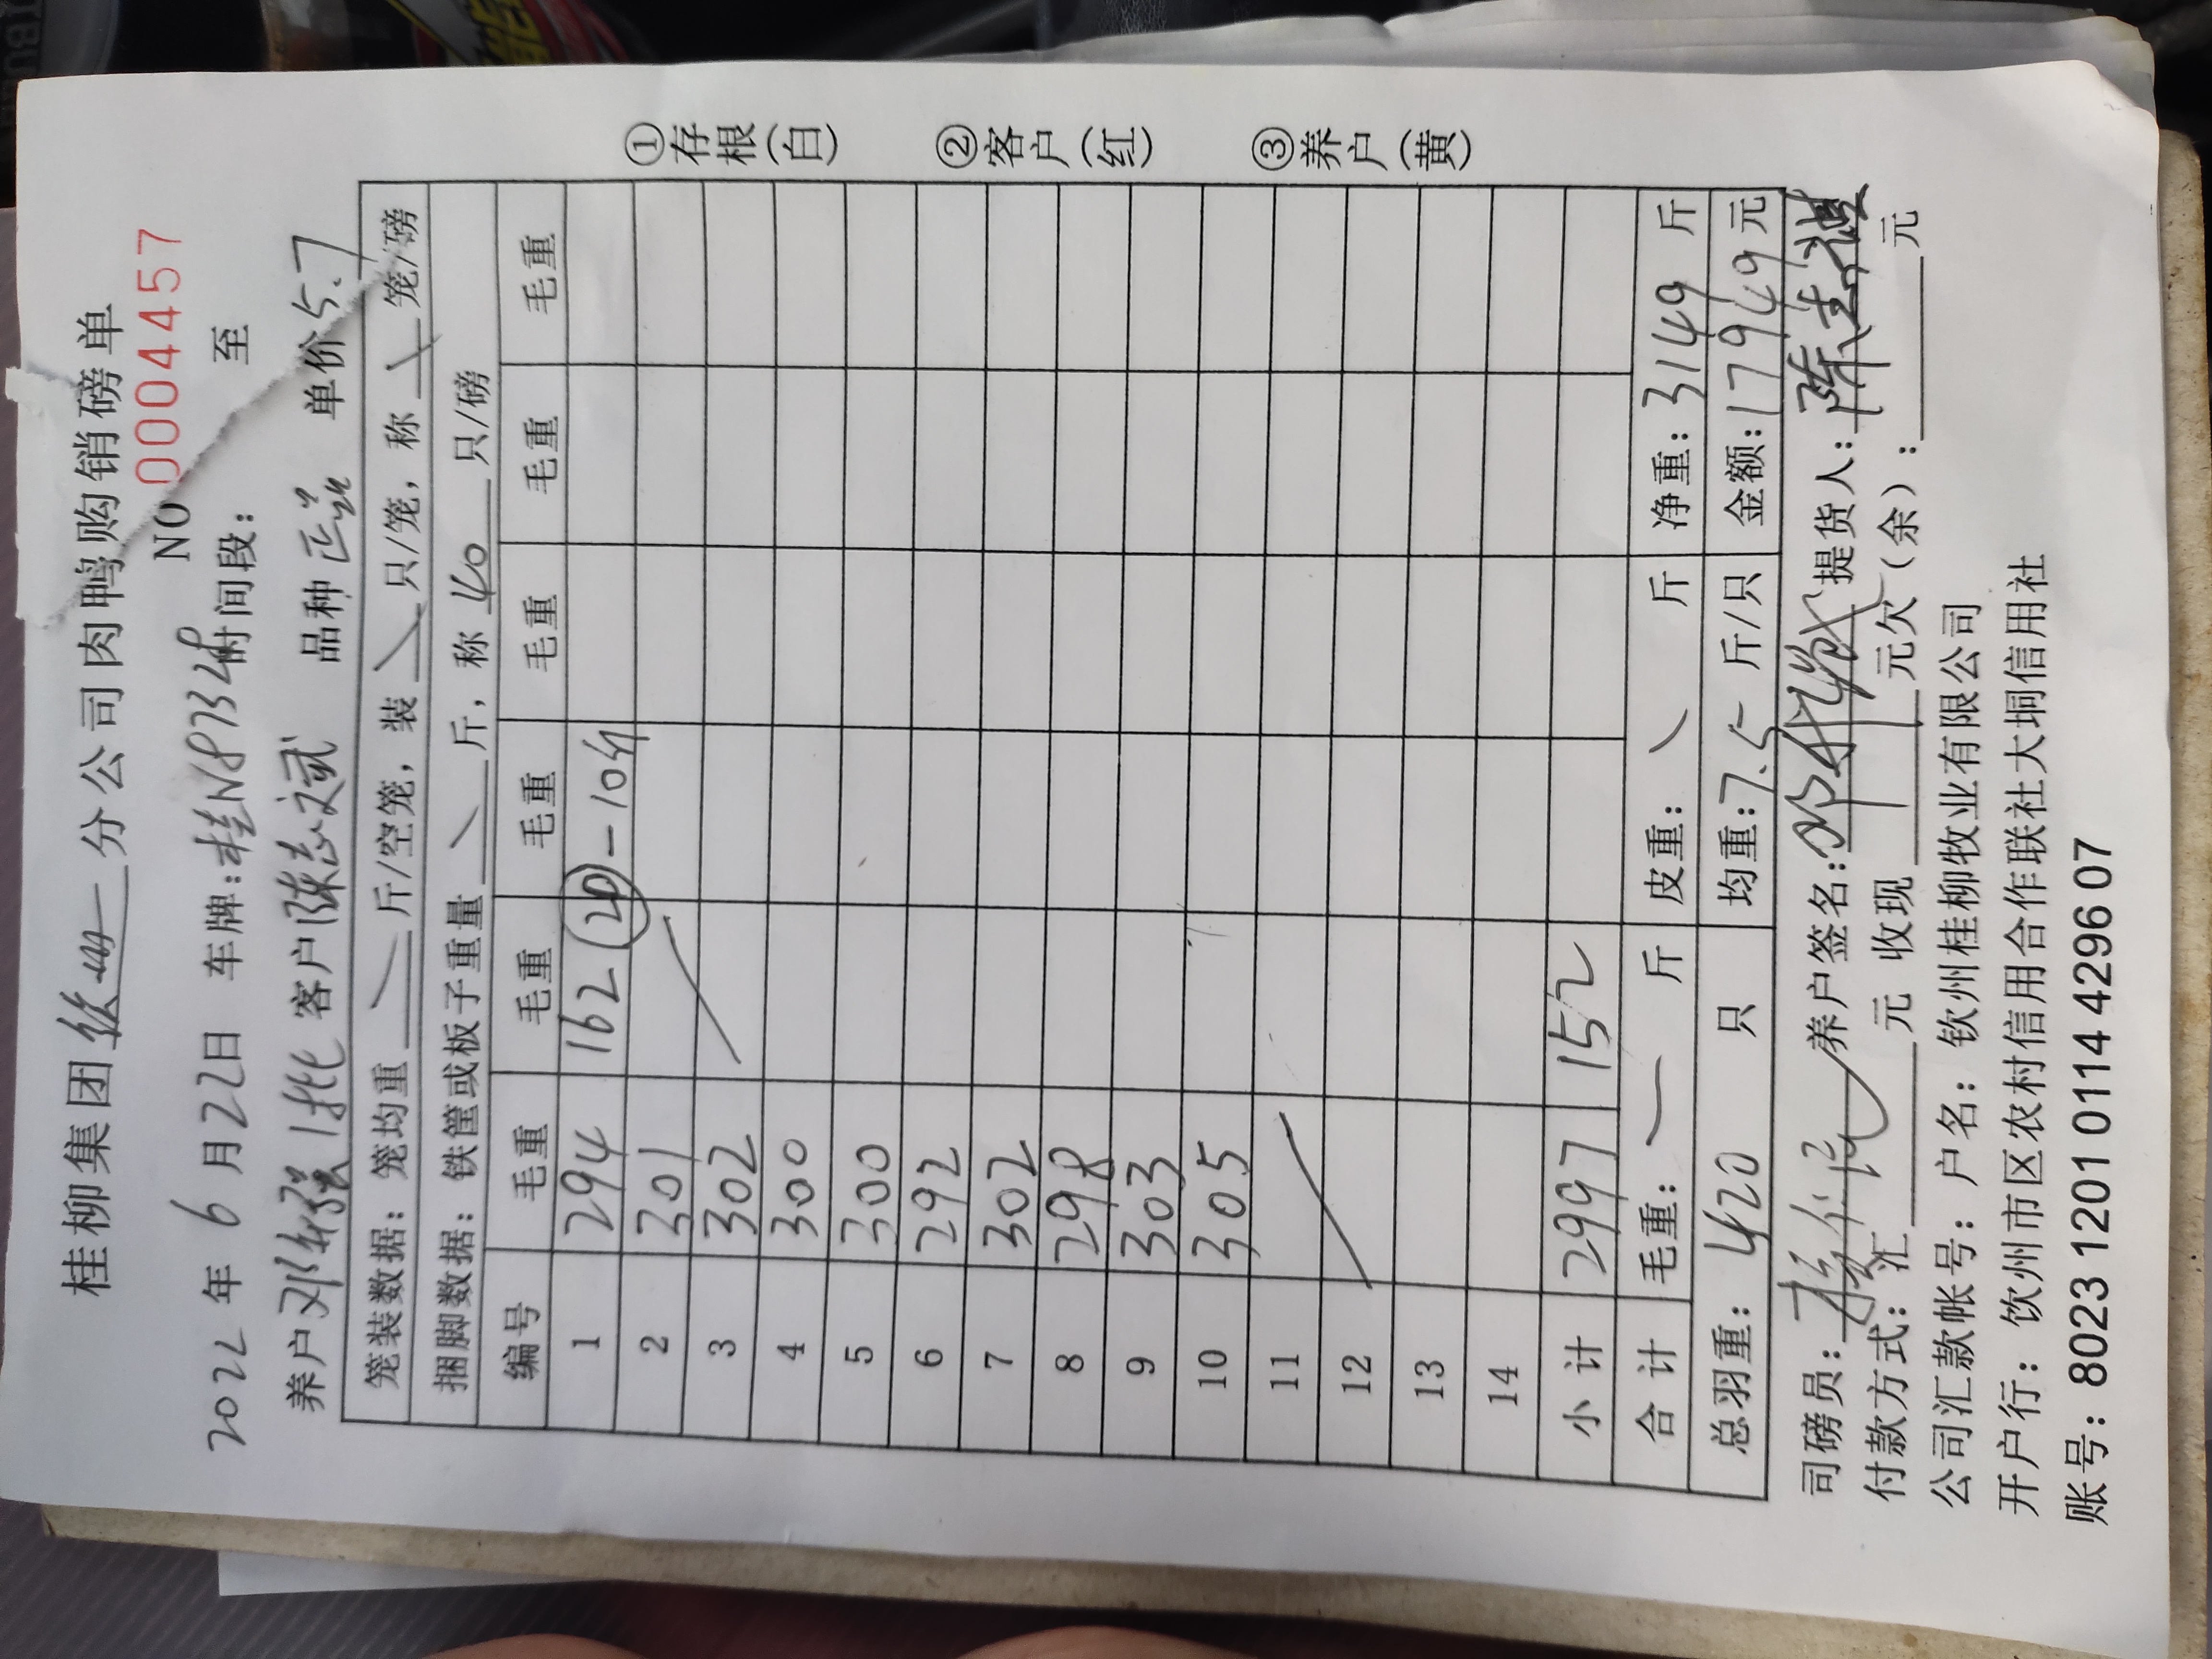 桂柳集团 分公司肉鸭购销磅单
NO 0004457
2022年6月22日 车牌:桂N8734 时间段: 至
养户 邓 客户 陈志斌 品种 单价 5.7
笼装数据: 笼均重 斤/空笼, 装 只/笼, 称 笼/磅
捆脚数据: 铁筐或板子重量 斤, 称 40 只/磅
编号 毛重 毛重 毛重 毛重 毛重 毛重
1 294 162 (20) -10斤
2 301
3 302
4 300
5 300
6 292
7 302
8 298
9 303
10 305
11
12
13
14
小计 2997 152
合计 毛重: 斤 皮重: 斤 净重: 3149 斤
总羽重: 420 只 均重: 7.5 斤/只 金额: 17949 元
司磅员: 养户签名: 提货人: 陈志斌
付款方式: 汇 元 收现 元欠(余): 元
公司汇款帐号: 户名: 钦州桂柳牧业有限公司
开户行: 钦州市区农村信用合作联社大垌信用社
账号: 8023 1201 0114 4296 07
①存根(白) ②客户(红) ③养户(黄)